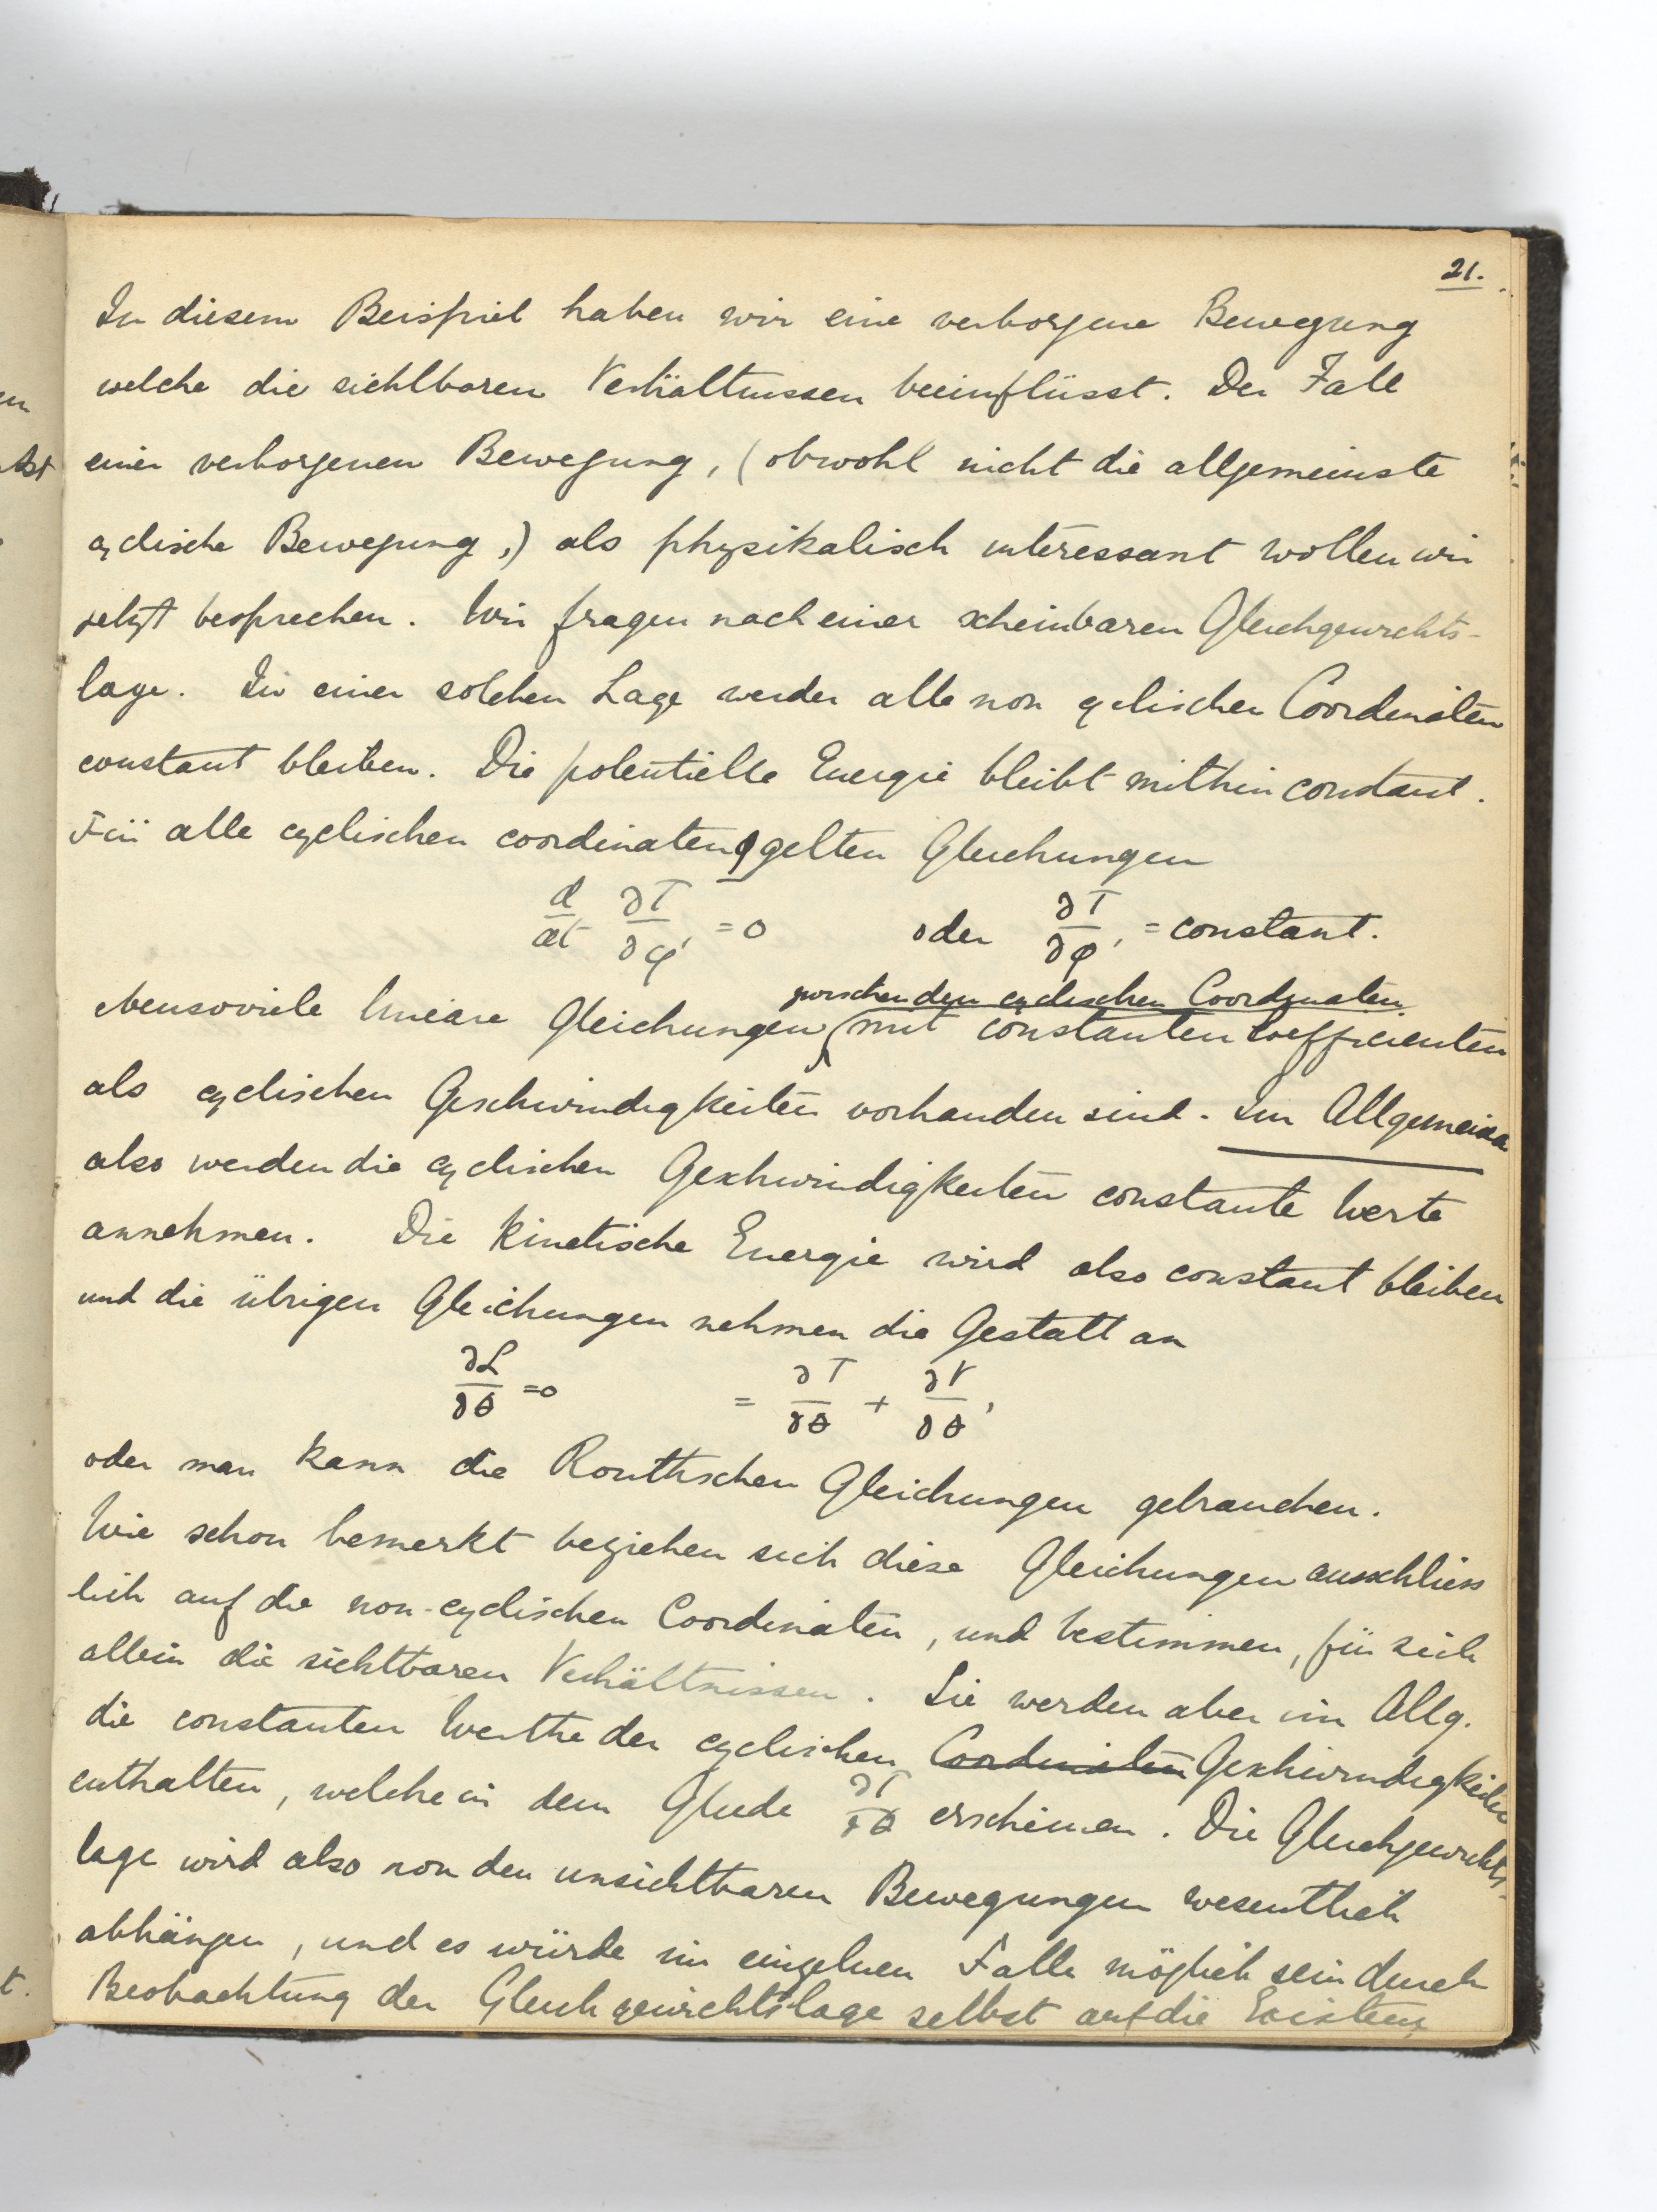 21.
In diesem Beispiel haben wir eine verborgene Bewegung
welche die sichtbaren Verhältnissen beeinflüsst. Der Fall
einer verborgenen Bewegung, (obwohl nicht die allgemeinste
cyclische Bewegung,) als physikalisch interessant wollen wir
jetzt besprechen. Wir fragen nach einer scheinbaren Gleichgewichts-
lage. In einer solchen Lage werden alle non cyclischen Coordinaten
constant bleiben. Die potentielle Energie bleibt mithin constant.
Für alle cyclischen coordinaten φ gelten Gleichungen
d/dt ∂T/∂φ' = 0 oder ∂T/∂φ' = constant.
zwischen den cyclischen Coordinaten
ebensoviele lineare Gleichungen mit constanten Coefficienten
als cyclischen Geschwindigkeiten vorhanden sind. Im Allgemeinen
also werden die cyclischen Geschwindigkeiten constante Werte
annehmen. Die Kinetische Energie wird also constant bleiben
und die übrigen Gleichungen nehmen die Gestalt an
∂L/∂θ = 0 = ∂T/∂θ + ∂V/∂θ,
oder man kann die Routhschen Gleichungen gebrauchen.
Wie schon bemerkt beziehen sich diese Gleichungen ausschliess
lich auf die non-cyclischen Coordinaten, und bestimmen, für sich
allein die sichtbaren Verhältnissen. Sie werden aber im Allg.
die constanten Werthe der cyclischen Coordinaten Geschwindigkeiten
enthalten, welche in dem Gliede ∂T/∂θ erscheinen. Die Gleichgewichts-
lage wird also von den unsichtbaren Bewegungen wesentlich
abhängen, und es würde im einzelnen Falle möglich sein durch
Beobachtung der Gleichgewichtslage selbst auf die Existenz